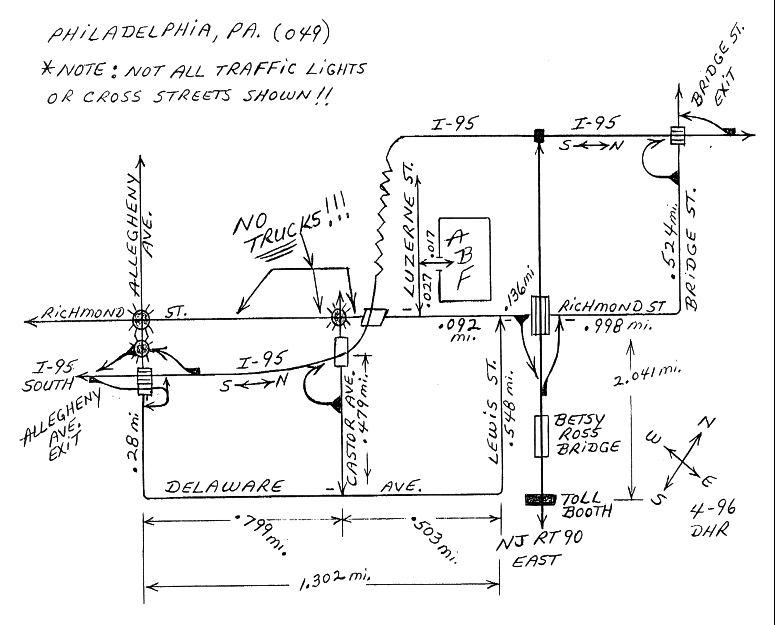 PHILADELPHIA, PA. (049)
*NOTE: NOT ALL TRAFFIC LIGHTS
OR CROSS STREETS SHOWN!!
BRIDGE ST.
EXIT
I-95
I-95
S N
ALLEGHENY
AVE.
NO
TRUCKS!!!
LUZERNE ST.
.017
.027
A
B
F
.524 mi.
BRIDGE ST.
RICHMOND ST.
.092
mi.
.136 mi
RICHMOND ST
.998 mi.
I-95
SOUTH
I-95
S N
ALLEGHENY
AVE.
EXIT
.28 mi
CASTOR AVE.
.479 mi.
LEWIS ST.
.548 mi.
2.041 mi.
BETSY
ROSS
BRIDGE
DELAWARE AVE.
TOLL
BOOTH
N
W
E
S
4-96
DHR
.799 mi.
.503 mi.
NJ RT 90
EAST
1.302 mi.